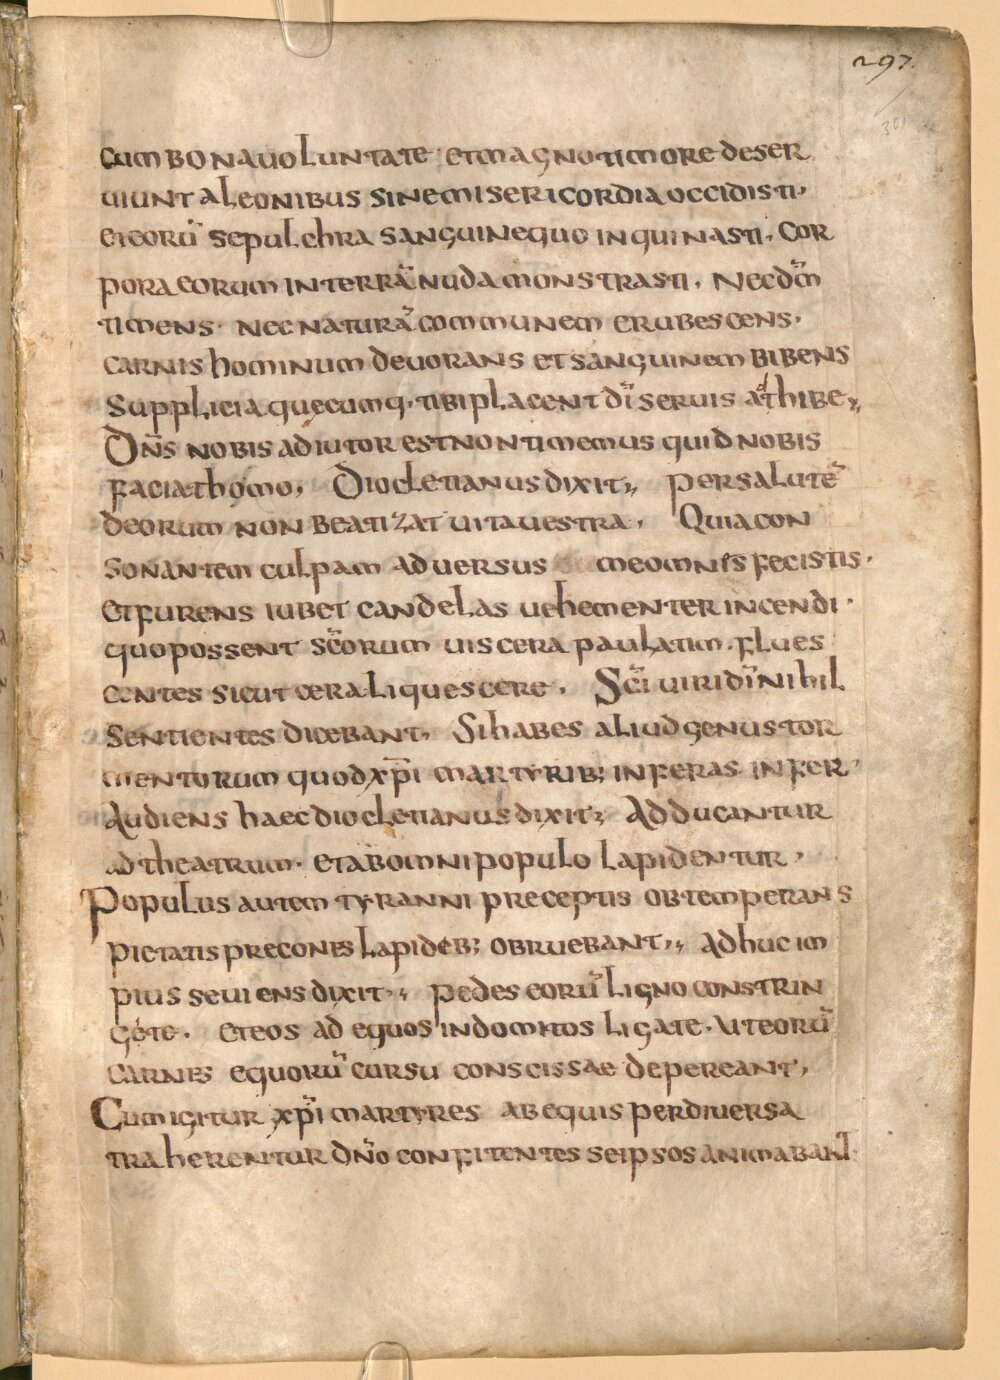 297.
301
cum bona uoluntate et magno timore deser
uiunt a leonibus sine misericordia occidisti.
et eorū sepulchra sanguine quo inquinasti. Cor
pora eorum in terrā nuda monstrasti. Nec dm̄
timens. nec naturā communem erubescens.
carnis hominum deuorans et sanguinem bibens
Supplicia quecumq. tibi placent dī seruis adthibe,,
Dn̄s nobis adiutor est non timemus quid nobis
faciat homo, Diocletianus dixit,, per salutē
deorum non beatizat uita uestra. Quia con
sonantem culpam aduersus me omnes fecistis.
Et furens iubet candelas uehementer incendi.
quo possent sc̄orum uiscera paulatim. flues
centes sicut cera liquescere. Sc̄i uiri dī nihil
sentientes dicebant. Si habes aliud genus tor
mentorum quod xp̄i martyrib; inferas infer
Audiens haec diocletianus dixit; Adducantur
ad theatrum. et ab omni populo lapidentur,
Populus autem tyranni preceptis obtemperans
pietatis precones lapideb; obruebant,, Adhuc im
pius seuiens dixit,, pedes eorū ligno constrin
gete. Et eos ad equos indomitos ligate. ut eorū
carnes equorū cursu conscissae depereant,
Cum igitur xp̄i martyres ab equis per diuersa
traherentur dn̄o confitentes se ipsos animabant.